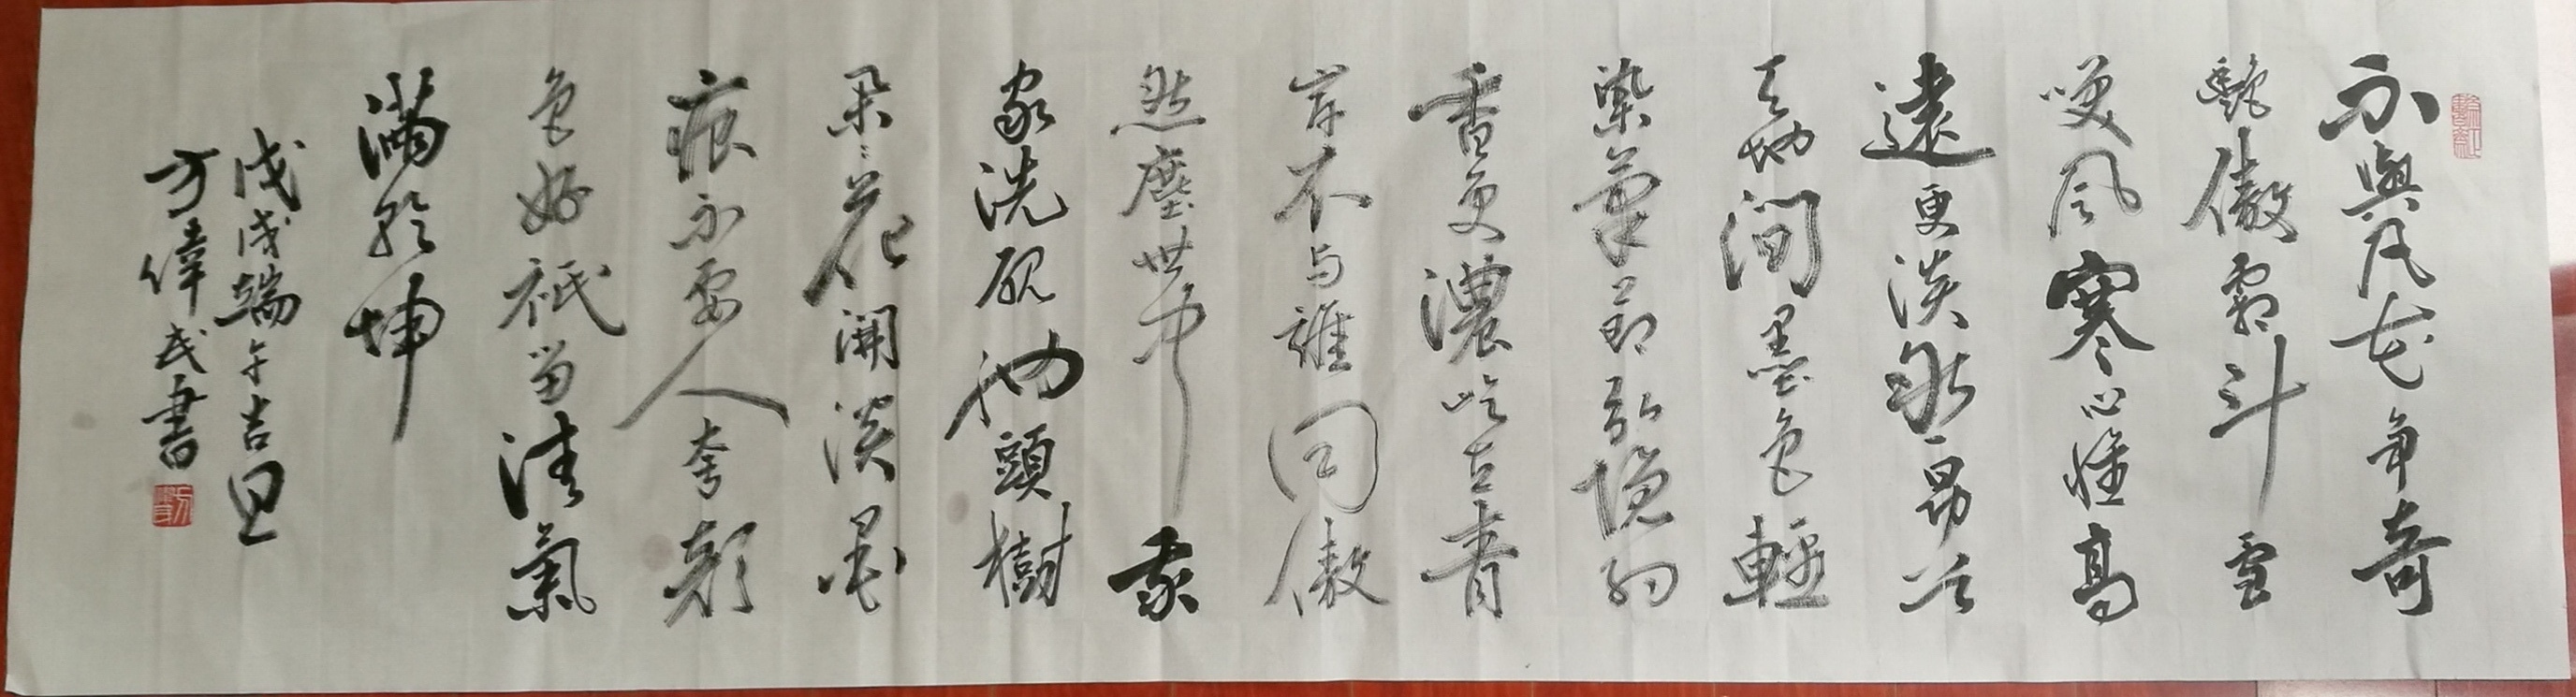 不與凡花争奇
艷傲霜斗雪
风寒心高
遠更淡昂
天地间墨色輕
染氣節
香更濃屹立青
岸不与誰同傲
然塵世中我
家洗砚池頭樹
朵〻花開淡墨
痕不要人夸颜
色好衹留清氣
满乾坤
戊戌端午吉旦
方偉民書